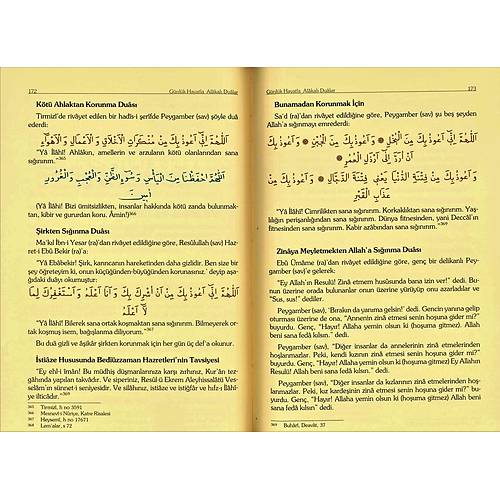 172 Günlük Hayatla Alâkalı Dualar
Kötü Ahlaktan Korunma Duâsı
Tirmizî'de rivâyet edilen bir hadîs-i şerîfde Peygamber (sav) şöyle duâ
ederdi:
اَللّٰهُمَّ اِنِّى اَعُوذُ بِكَ مِنْ مُنْكَرَاتِ الْاَخْلَاقِ وَالْاَعْمَالِ وَالْاَهْوَاءِ
"Yâ İlâhî! Ahlâkın, amellerin ve arzuların kötü olanlarından sana
sığınırım."365
اَللّٰهُمَّ احْفَظْنَا مِنَ الْيَأْسِ وَسُوءِ الظَّنِّ وَالْعُجْبِ وَالْغُرُورِ
اٰمِينَ
(Yâ İlâhî! Bizi ümitsizlikten, insanlar hakkında kötü zanda bulunmak-
tan, kibir ve gururdan koru. Âmin!)366
Şirkten Sığınma Duâsı
Ma'kıl İbn-i Yesar (ra)'dan rivâyet edildiğine göre, Resûlullah (sav) Haz-
ret-i Ebû Bekir (ra)'a:
"Yâ Ebâbekir! Şirk, karıncanın hareketinden daha gizlidir. Ben size bir
şey öğreteyim ki, onun küçüğünden-büyüğünden korunasınız.' deyip aşa-
ğıdaki duâyı okumuştur:
اَللّٰهُمَّ اِنِّى اَعُوذُ بِكَ مِنْ اَنْ اُشْرِكَ بِكَ وَاَنَا اَعْلَمُ وَاَسْتَغْفِرُكَ لِمَا
لَا اَعْلَمُ
"Yâ İlâhî! Bilerek sana ortak koşmaktan sana sığınırım. Bilmeyerek or-
tak koşmuş isem, bağışlanma diliyorum."367
Bu duâ gizli ve âşikâr şirkten korunmak için her gün üç def'a okunur.
İstiâze Hususunda Bedîüzzaman Hazretleri'nin Tavsiyesi
"Ey ehl-i îmân! Bu müdhiş düşmanlarınıza karşı zırhınız, Kur'ân tez-
gâhında yapılan takvâdır. Ve siperiniz, Resûl-ü Ekrem Aleyhissalâtü Ves-
selâm'ın sünnet-i seniyesidir. Ve silâhınız, istiâze ve istiğfâr ve hıfz-ı İlâhî-
ye ilticâdır."368
365 Tirmizî, h no 3591
366 Mesnevî-i Nûriye, Katre Risalesi
367 Heysemî, h no 17671
368 Lem'alar, s 72
Günlük Hayatla Alâkalı Dualar 173
Bunamadan Korunmak İçin
Sa'd (ra)'dan rivâyet edildiğine göre, Peygamber (sav) şu beş şeyden
Allah'a sığınmayı emrederdi:
اَللّٰهُمَّ اِنِّى اَعُوذُ بِكَ مِنَ الْبُخْلِ وَاَعُوذُ بِكَ مِنَ الْجُبْنِ وَاَعُوذُ بِكَ
اَنْ اُرَدَّ اِلٰى اَرْذَلِ الْعُمُرِ
وَاَعُوذُ بِكَ مِنْ فِتْنَةِ الدُّنْيَا يَعْنِى فِتْنَةَ الدَّجَّالِ وَاَعُوذُ بِكَ مِنْ
عَذَابِ الْقَبْرِ
"Yâ İlâhî! Cimrilikten sana sığınırım. Korkaklıktan sana sığınırım. Yaş-
lılığın perişanlığından sana sığınırım. Dünya fitnesinden, yani Deccâl'in
fitnesinden sana sığınırım. Kabir azabından sana sığınırım."369
Zinâya Meyletmekten Allah'a Sığınma Duâsı
Ebû Ümâme (ra)'dan rivâyet edildiğine göre, genç bir delikanlı Pey-
gamber (sav)'e gelerek:
"Ey Allah'ın Resulü! Zinâ etmem hususunda bana izin ver!" dedi. Bu-
nun üzerine orada bulunanlar onun üzerine yürüyüp onu azarladılar ve
"Sus, sus!" dediler.
Peygamber (sav), "Bırakın da yanıma gelsin!" dedi. Gencin yanına gelip
oturması üzerine de ona, "Annenin zinâ etmesi senin hoşuna gider mi?"
buyurdu. Genç, "Hayır! Aleyhime yemin olsun ki (hoşuma gitmez) Allah
beni sana fedâ kılsın." dedi.
Peygamber (sav), "Diğer insanlar da annelerinin zinâ etmelerinden
hoşlanmazlar. Peki, kendi kızının zinâ etmesi senin hoşuna gider mi?" bu-
yurdu. Genç, "Hayır! Allah'a yemin olsun ki (hoşuma gitmez) Ey Allah'ın
Resulü! Allah beni sana fedâ kılsın." dedi.
Peygamber (sav), "Diğer insanlar da kızlarının zinâ etmelerinden hoş-
lanmazlar. Peki, kız kardeşinin zinâ etmesi senin hoşuna gider mi?" bu-
yurdu. Genç, "Hayır! Allah'a yemin olsun ki (hoşuma gitmez) Allah beni
sana fedâ kılsın." dedi.
369 Buhârî, Deavât, 37